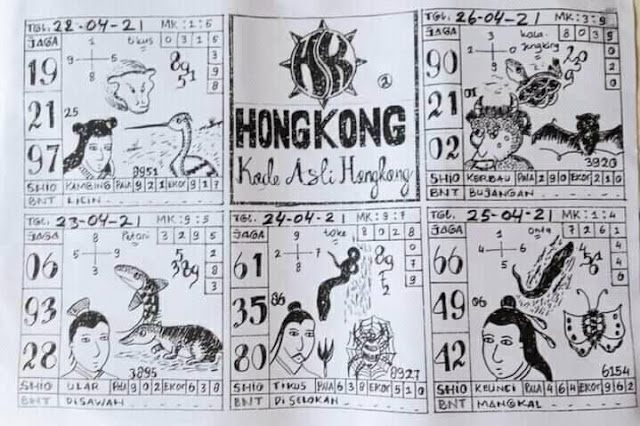 TGL. 22-04-21 MK: 1:5
JAGA 1 tikus 0 3 1 5
19
21 25
97 8951
SHIO KAMBING PALA 9 2 1 EKOR 9 1 7
BNT LICIN
HSK
2
HONGKONG
Kode Asli Hongkong
TGL. 26-04-21 MK: 3:9
JAGA kala jengking 8 0 3 5
90
21 01
02 3920
SHIO KERBAU PALA 2 9 0 EKOR 2 1 0
BNT BUJANGAN
TGL. 23-04-21 MK: 9:5
JAGA 8 Petani 3 2 9 5
06
93
28 3895
SHIO ULAR PALA 9 0 2 EKOR 6 3 8
BNT DISAWAH
TGL. 24-04-21 MK: 9:7
JAGA 9 toke 8 0 2 8
61
35 86
80 8927
SHIO TIKUS PALA 6 3 8 EKOR 5 1 0
BNT DISELOKAN
TGL. 25-04-21 MK: 1:4
JAGA 1 onta 7 2 6 1
66
49 06
42 6154
SHIO KELINCI PALA 4 6 4 EKOR 9 6 2
BNT MANGKAL